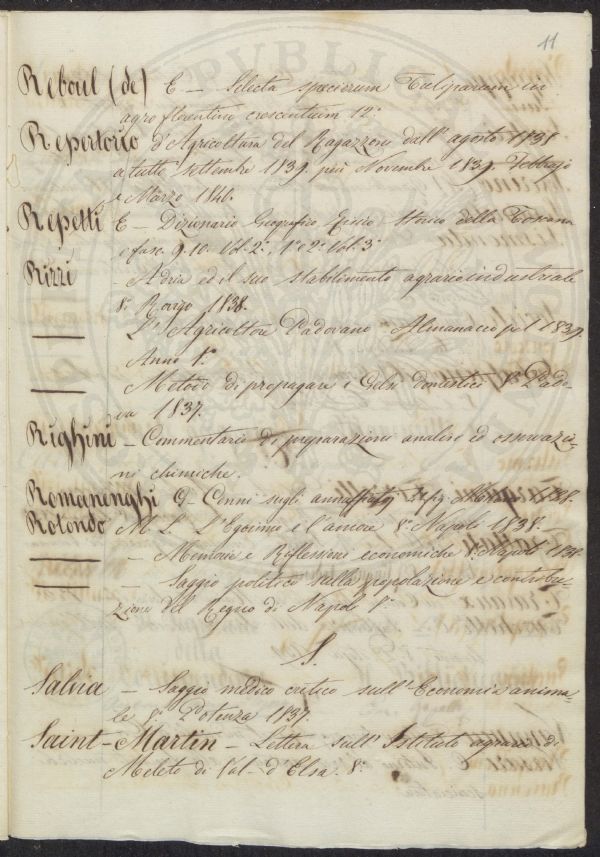 11
Reboul (de) E - Selecta specierum Tuliparum in
agro florentino crescentium 12°
Repertorio d'Agricoltura del Ragazzoni dall'agosto 1838
a tutto settembre 1839 più Novembre 1839. Febbrajo
e Marzo 1840.
Repetti E - Dizionario Geografico Fisico Storico della Toscana
fasc. 9. 10. Vol. 2°, 1° e 2° Vol. 3°
Rizzi - Adria ed il suo stabilimento agrario industriale
8° Rovigo 1838.
— L'Agricoltore Padovano Almanacco pel 1839.
Anno 1°
— Metodo di propagare i Gelsi domestici 8° Pado-
va 1837.
Righini - Commentario di preparazioni analisi ed osservazio-
ni chimiche.
Romanenghi G. Cenni sugli
Rotondo M. L. L'Egoismo e l'amore 8° Napoli 1838.
— - Memorie e Riflessioni economiche 8° Napoli 1838
— - Saggio politico sulla popolazione e contribu-
zione del Regno di Napoli 8°
S.
Salvia - Saggio medico critico sull'Economia anima-
le 8° Potenza 1837.
Saint-Martin - Lettera sull'Istituto agrario di
Meleto di Val-d'Elsa. 8°